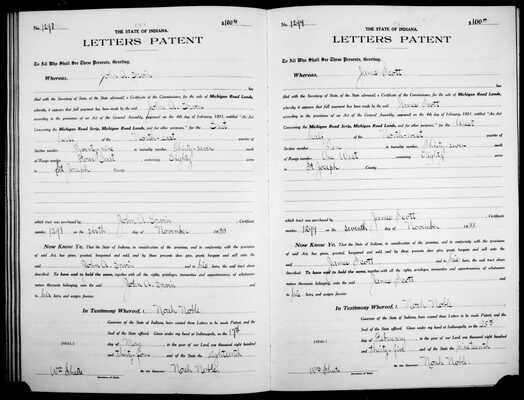 No. 1298
$100.00
THE STATE OF INDIANA.
LETTERS PATENT
To All Who Shall See These Presents, Greeting:
Whereas, John A. Irwin has
filed with the Secretary of State, of the State aforesaid, a Certificate of the Commissioner, for the sale of Michigan Road Lands,
whereby it appears that full payment has been made by the said John A. Irwin
according to the provisions of an Act of the General Assembly, approved on the 4th day of February, 1831, entitled "An Act
Concerning the Michigan Road Scrip, Michigan Road Lands, and for other purposes," for the East
North-east quarter of
Section number Twenty-nine in township number Thirty-seven
of Range number Three East containing Eighty acres
in St. Joseph County.
which tract was purchased by John A. Irwin, Certificate
1298 on the sixth day of November 1833
Now Know Ye, That the State of Indiana, in consideration of the premises, and in conformity with the provisions
of said Act, has given, granted, bargained and sold, and by these presents does give, grant, bargain and sell unto the
said John A. Irwin and to his heirs, the said tract above
described. To have and to hold the same, together with all the rights, privileges, immunities and appurtenances, of whatsoever
nature thereunto belonging, unto the said John A. Irwin
and to his heirs, and assigns forever.
In Testimony Whereof, I Noah Noble
Governor of the State of Indiana, have caused these Letters to be made Patent, and the
Seal of the State affixed. Given under my hand at Indianapolis, on the 19th
(SEAL) day of May in the year of our Lord, one thousand eight hundred
and thirty-four and of the State the eighteenth
Wm Sheets By the Governor: Noah Noble
Secretary of State.
No. 1299
$100.00
THE STATE OF INDIANA.
LETTERS PATENT
To All Who Shall See These Presents, Greeting:
Whereas, James Scott has
filed with the Secretary of State, of the State aforesaid, a Certificate of the Commissioner, for the sale of Michigan Road Lands,
whereby it appears that full payment has been made by the said James Scott
according to the provisions of an Act of the General Assembly, approved on the 4th day of February, 1831, entitled "An Act
Concerning the Michigan Road Scrip, Michigan Road Lands, and for other purposes," for the West
North-west quarter of
Section number in township number Thirty-seven
of Range number One West containing Eighty acres
in St. Joseph County.
which tract was purchased by James Scott, Certificate
1299 on the seventh day of November 1833
Now Know Ye, That the State of Indiana, in consideration of the premises, and in conformity with the provisions
of said Act, has given, granted, bargained and sold, and by these presents does give, grant, bargain and sell unto the
said James Scott and to his heirs, the said tract above
described. To have and to hold the same, together with all the rights, privileges, immunities and appurtenances, of whatsoever
nature thereunto belonging, unto the said James Scott
and to his heirs, and assigns forever.
In Testimony Whereof, I Noah Noble
Governor of the State of Indiana, have caused these Letters to be made Patent, and the
Seal of the State affixed. Given under my hand at Indianapolis, on the 20th
(SEAL) day of February in the year of our Lord, one thousand eight hundred
and thirty-five and of the State the nineteenth
Wm Sheets By the Governor: Noah Noble
Secretary of State.